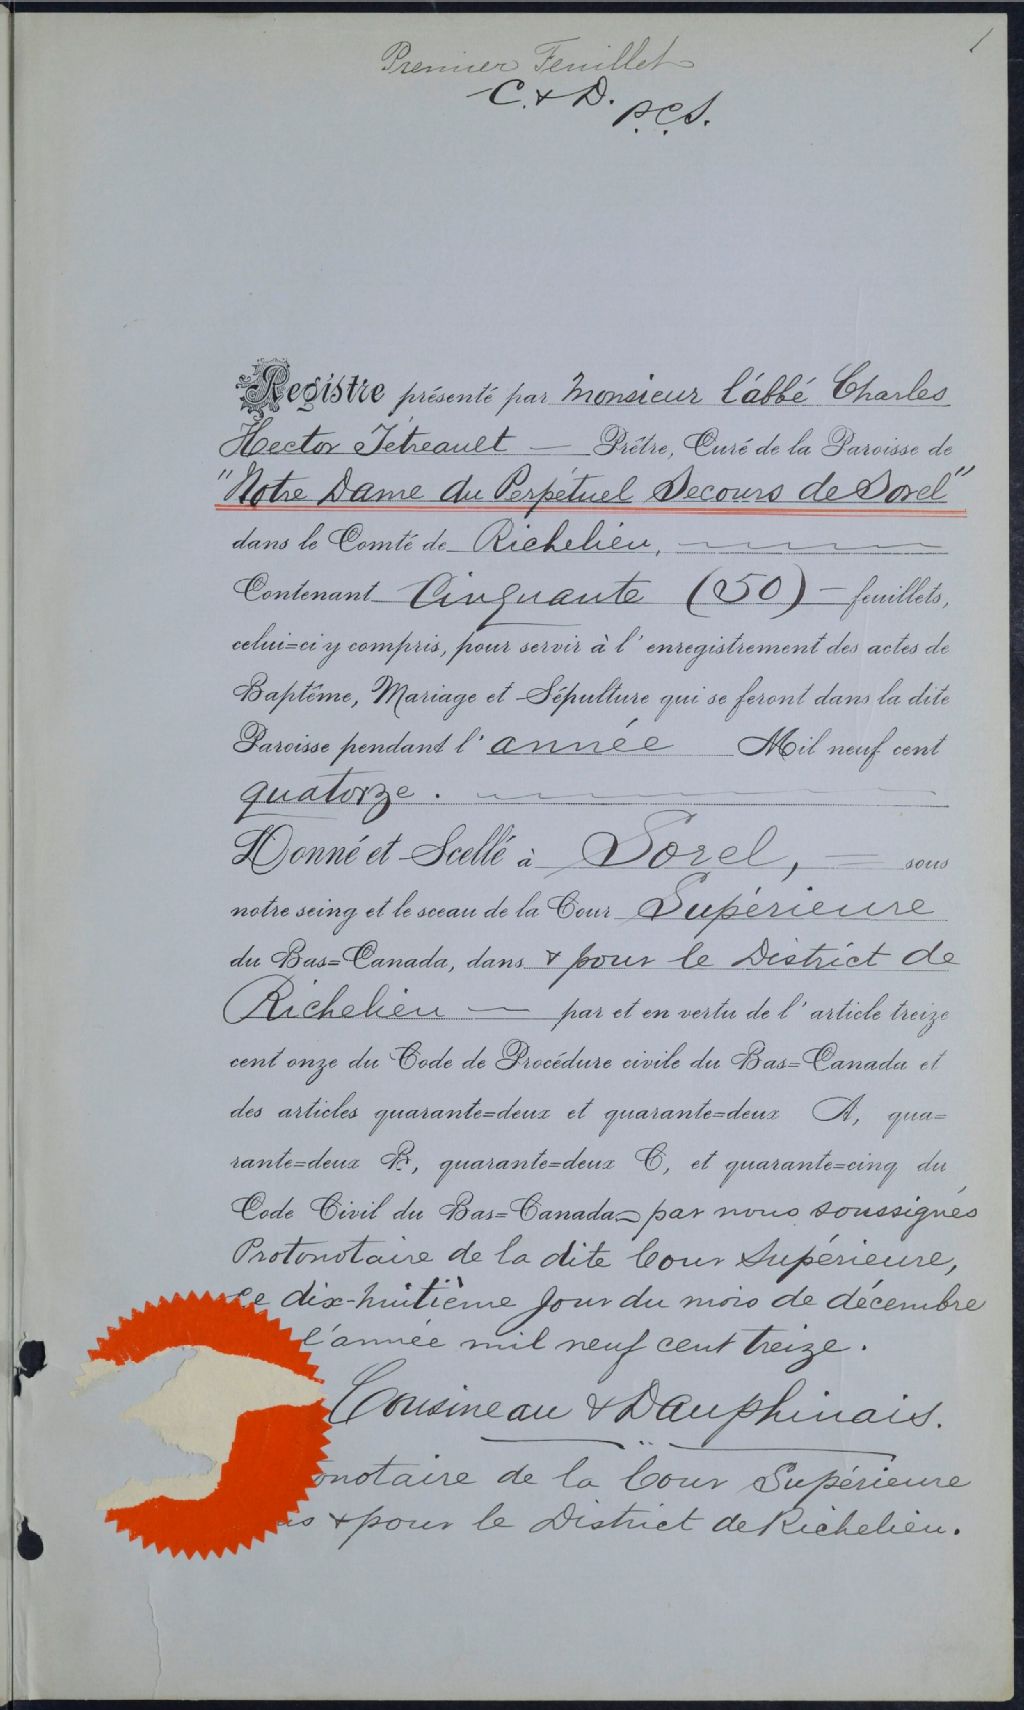 1
Premier Feuillet
C. & D.
P.C.S.
Registre présenté par Monsieur l'abbé Charles
Hector Tétreault — Prêtre, Curé de la Paroisse de
"Notre Dame du Perpétuel Secours de Sorel"
dans le Comté de Richelieu,
Contenant Cinquante (50) — feuillets,
celui=ci y compris, pour servir à l'enregistrement des actes de
Baptême, Mariage et Sépulture qui se feront dans la dite
Paroisse pendant l'année Mil neuf cent
quatorze.
Donné et Scellé à Sorel, — sous
notre seing et le sceau de la Cour Supérieure
du Bas=Canada, dans & pour le District de
Richelieu — par et en vertu de l'article treize
cent onze du Code de Procédure civile du Bas=Canada et
des articles quarante=deux et quarante=deux A, qua=
rante=deux B, quarante=deux C, et quarante=cinq du
Code Civil du Bas=Canada par nous soussignés
Protonotaire de la dite Cour Supérieure,
ce dix-huitième jour du mois de décembre
l'année mil neuf cent treize.
Cousineau & Dauphinais.
onotaire de la Cour Supérieure
s & pour le District de Richelieu.